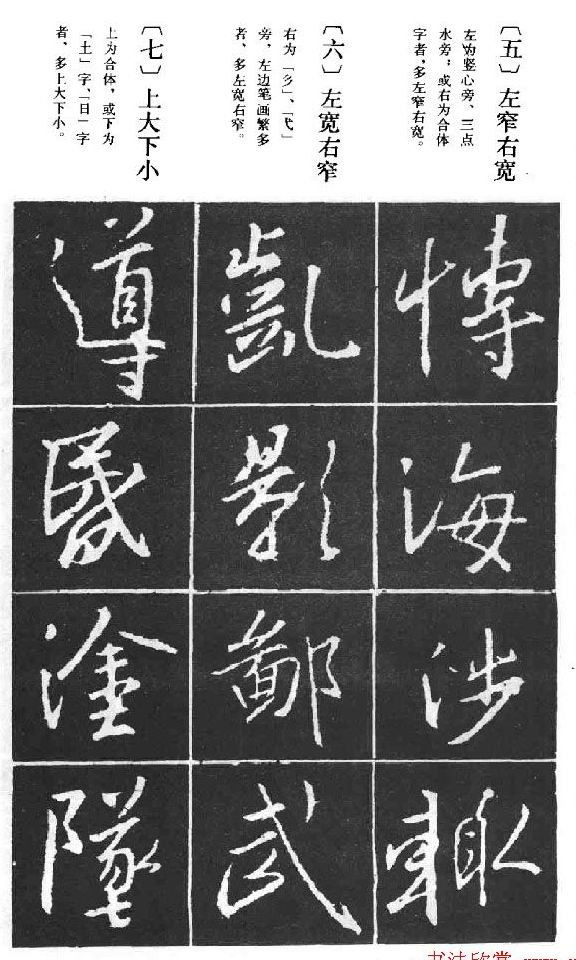 〔五〕左窄右宽
左为竖心旁、三点
水旁，或右为合体
字者，多左窄右宽。
〔六〕左宽右窄
右为「彡」、「弋」
旁，左边笔画繁多
者，多左宽右窄。
〔七〕上大下小
上为合体，或下为
「土」字、「日」字
者，多上大下小。
慱
海
涉
輙
凱
影
鄙
武
導
昬
塗
墜
书法欣赏